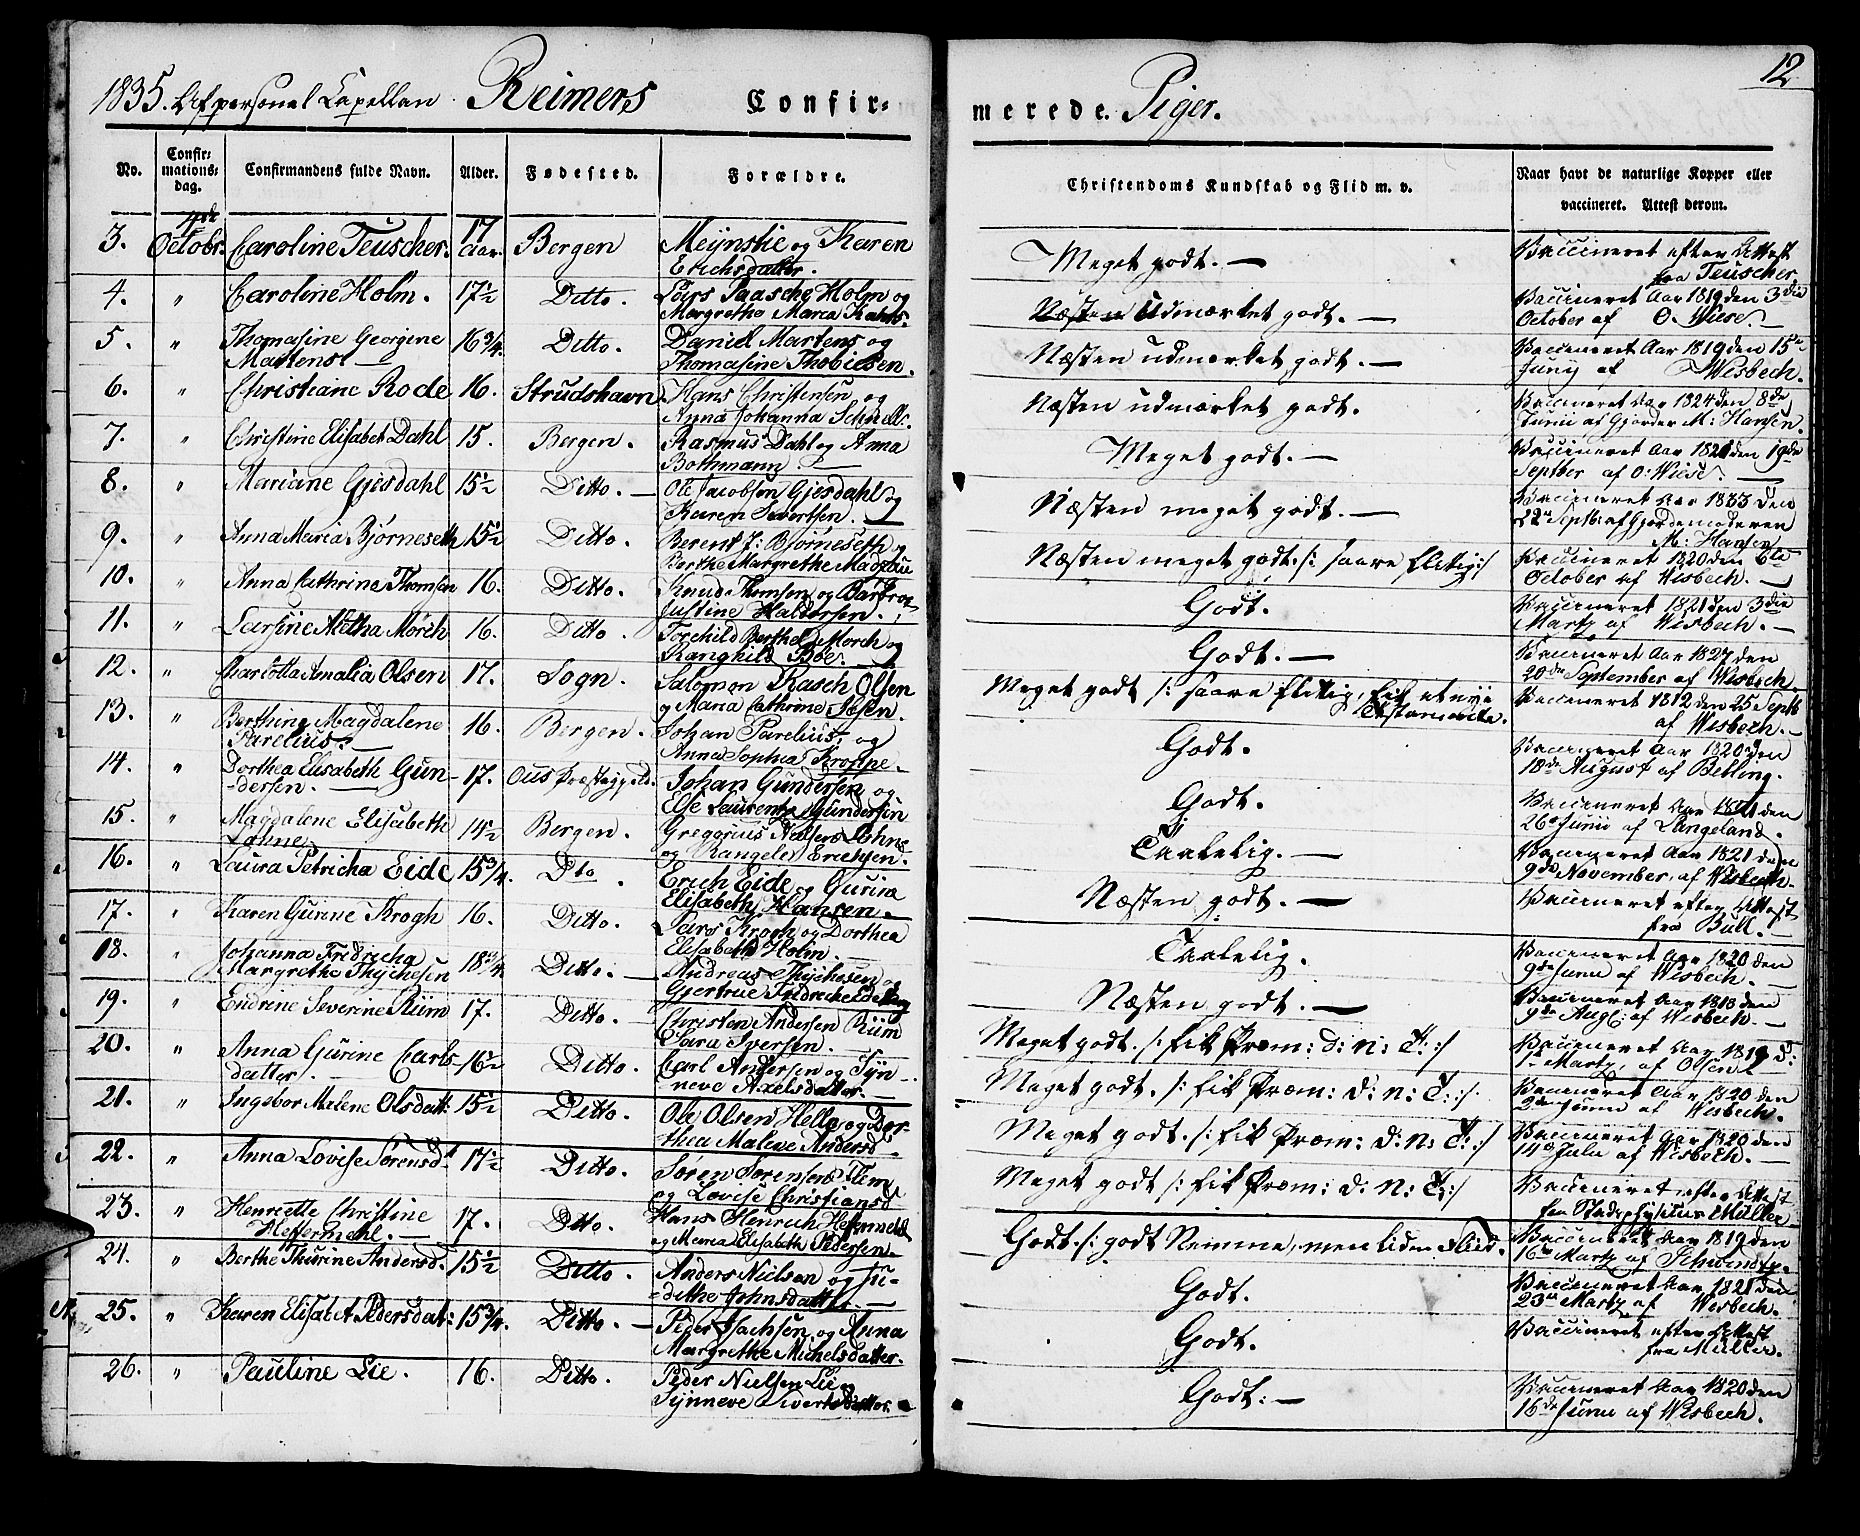 12
1835. Af personel Capellan Reimers Confir-
merede Piger.
No.
Confir-
mations-
dag.
Confirmandens fulde Navn.
Alder.
Fødested.
Forældre.
Christendoms Kundskab og Flid m. v.
Naar havt de naturlige Kopper eller
vaccineret. Attest derom.
3. 4de Octobr. Caroline Teuscher. 17 Aar. Bergen
Meijnstie og Karen
Erichsdatter.
Meget godt. —
Vaccineret efter Attest
fra Teuscher
4. " Caroline Holm. 17½ Ditto.
Lars Paasche Holm og
Margrethe Maria Kahrs.
Næsten Udmærket godt. —
Vaccineret Aar 1819 den 3die
October af O. Wiese. —
5. " Thomasine Georgine
Martens 16¾. Ditto.
Daniel Martens og
Thomasine Thobiesen.
Næsten udmærket godt. —
Vaccineret Aar 1819 den 15de
Junij af Wisbech.
6. " Christiane Rode 16. Strudshavn
Hans Christensen og
Anna Johanna Schnell.
Næsten udmærket godt.
Vaccineret Aar 1824 den 8de
Junii af Gjorder M: Hansen.
7. " Christine Elisabet Dahl 15. Bergen.
Rasmus Dahl og Anna
Bothmann
Meget godt. —
Vaccineret Aar 1820 den 19de
Septber af O: Wiese. —
8. " Mariane Gjesdahl 15½ Ditto. —
Ole Jacobsen Gjesdahl og
Karen Sivertsen.
Næsten meget godt. —
Vaccineret Aar 1833 den
22de Septb: af Gjordemoderen
M: Hansen
9. " Anna Maria Bjørneseth 15½ Ditto.
Berent J: Bjørneseth og
Berthe Margrethe
Næsten meget godt. /: saare flitig :/
Vaccineret 1820 den 6te
October af Wisbech. —
10. " Anna Cathrina Thomsen 16. Ditto.
Knud Thomsen og
Justine Haldorsen.
Godt.
Vaccineret 1821 den 3die
Martz af Wisbech. —
11. " Larsine Metha Mörch 16. Ditto
Torchild Berthel Mörch og
Ranghild Böe.
Godt. —
Vaccineret Aar 1827 den
20de September af Wisbech.
12. " Charlotta Amalia Olsen 17. Sogn.
Salomon Rasch Olsen
og Maria Cathrine
Meget godt /: saare flitig, fik et nyt
Testamente.
Vaccineret 1812 den 25 Septb
af Wisbech. —
13. " Berthine Magdalene
Parelius. — 16. Bergen.
Johan Parelius, og
Anna Sophia Kroppe.
Godt.
Vaccineret Aar 1820 den
18de August af Behling.
14. " Dorthea Elisabeth Gun-
-dersen. — 17. Ous Præstegjeld.
Johan Gundersen og
Else Laurentze Gundersen
Godt.
Vaccineret Aar 1821 den
26de Junii af Langeland.
15. " Magdalene Elisabeth
Lohne 14½ Bergen.
Gregorius Nielsen Lohne
og Rangele Erichsen.
Taalelig. —
Vaccineret Aar 1821 den
9de November, af Wisbech.
16. " Laura Petricha Eide 15¾. Dto.
Erich Eide og Gurina
Elisabeth Hansen.
Næsten godt. —
Vaccineret efter Attest
fra Bull.
17. " Karen Gurine Krogh 16. Ditto.
Lars Krogh og Dorthea
Elisabeth Holm.
Taalelig.
Vaccineret Aar 1820 den
9de Junii af Wisbech. —
18. " Johanna Fredricha
Margrethe Thychesen 18¾ Ditto. —
Andreas Thychesen og
Gjertrue Fredriche
Næsten godt. —
Vaccineret Aar 1818 den
9de Aug: af Wisbech. —
19. " Endrine Severine Riim 17. Ditto.
Christen Andersen Riim
Sara Iversen.
Meget godt. /: fik Præm: d: n: T: :/
Vaccineret Aar 1819 d:
1ste Martz, af Olsen
20. " Anna Gurine Carls
datter. — 16½ Ditto.
Carl Andersen og Syn-
neve Axelsdatter. —
Meget godt. /: fik Præm: d: n: T: :/
Vaccineret Aar 1820 den
2den Junii af Wisbech.
21. " Ingebor Malene Olsdatt: 15½ Ditto.
Ole Olsen Helle og Dor-
thea Malene Andersd.
Meget godt. /: fik Præm: d: n: T: :/
Vaccineret Aar 1820 den
14de Julii af Wisbech. —
22. " Anna Lovise Sörensdt 17½ Ditto.
Sören Sörensen Flem
og Lovise Christiansd
Meget godt /: fik Præm: d: n: T: :/
Vaccineret efter Attest
fra Stadsphysicus Müller
23. " Henriette Christine
Heffermehl. — 17. Ditto.
Hans Henrich Heffermehl
og Maria Elisabeth Pedersen.
Godt. /: godt Nemme, men liden Flid.
Vaccineret Aar 1819 den
16de Martz af Schwindt.
24. " Berthe Thurine Andersd. 15½ Ditto.
Anders Nielsen og Ju-
-dithe Johnsdatt
Godt.
Vaccineret Aar 1821 den
23de Martz af Wisbech.
25. " Karen Elisabet Pedersdat: 15¾. Ditto. —
Peder Isachsen og Anna
Margrethe Michelsdatter.
Godt.
Vaccineret efter Attest
fra Müller.
26. " Pauline Lie. 16. Ditto.
Peder Nielsen Lie og
Synneve Sivertsdatter.
Godt: —
Vaccineret Aar 1820 den
16de Junii af Wisbech.